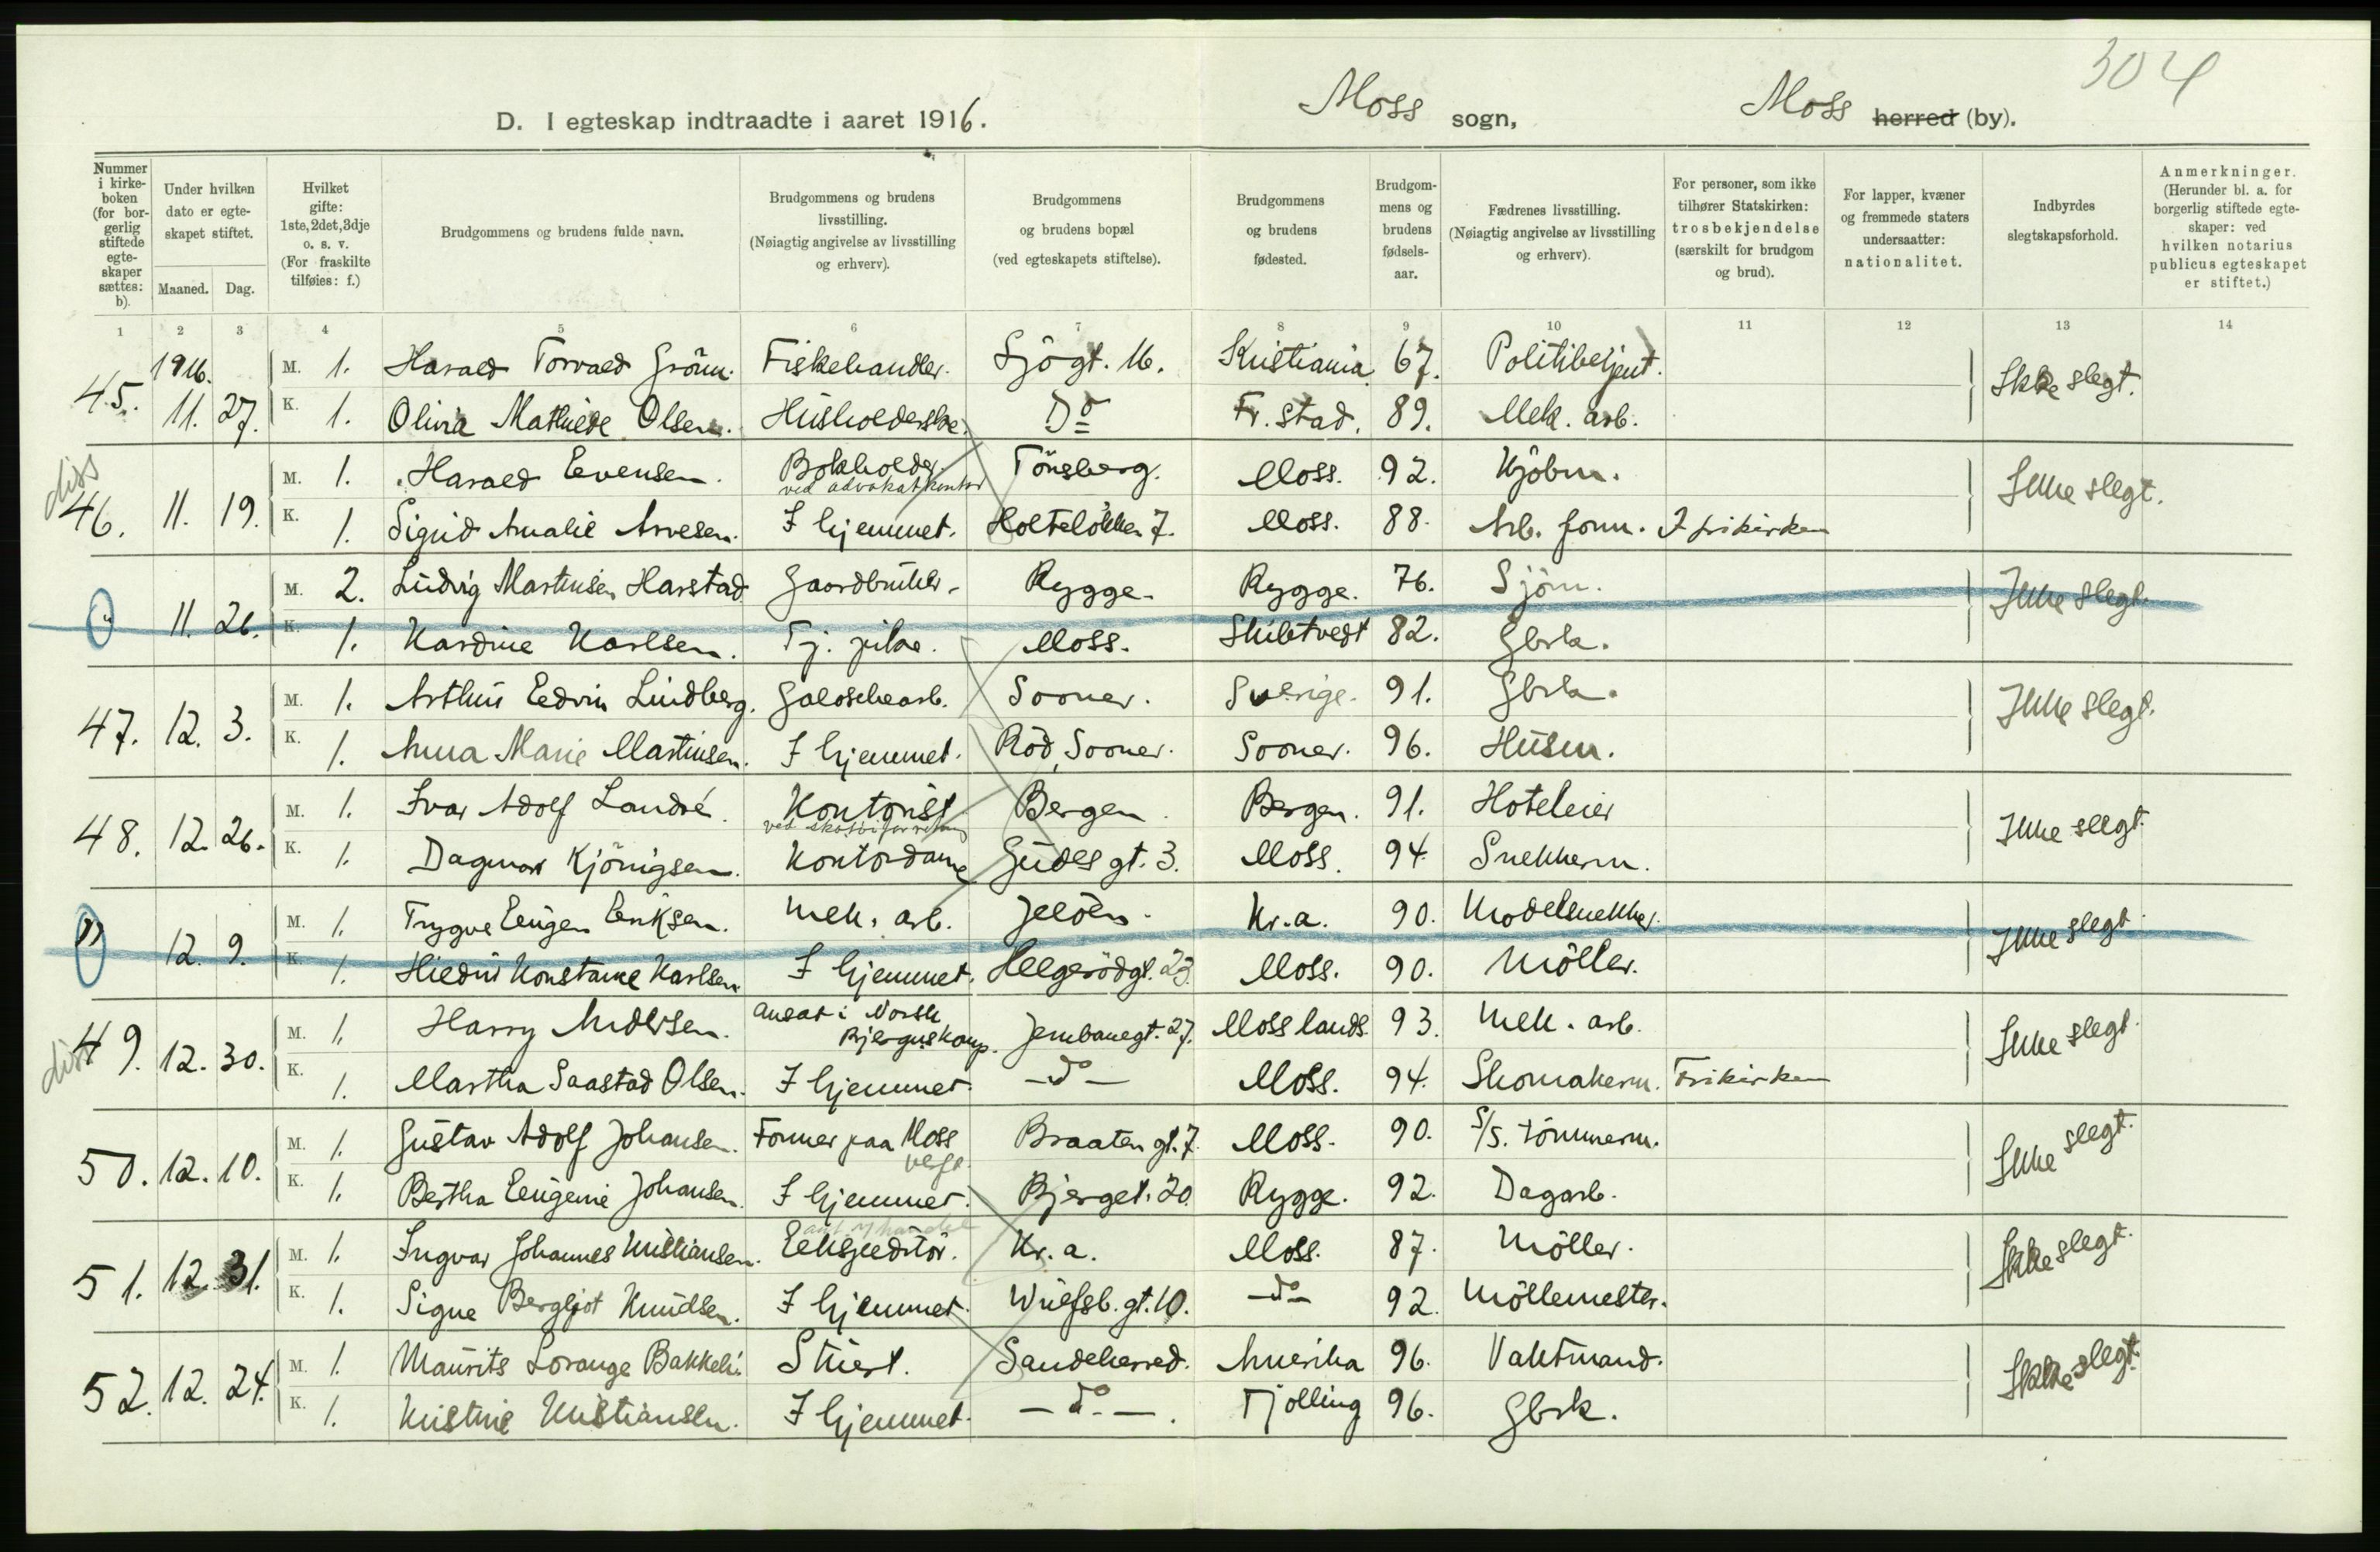 304
D. I egteskap indtraadte i aaret 1916. Moss sogn, Moss herred (by).
Nummer i kirkeboken (for borgerlig stiftede egteskaper sættes: b).
Under hvilken dato er egteskapet stiftet.
Maaned. Dag.
Hvilket gifte: 1ste, 2det, 3dje o. s. v. (For fraskilte tilføies: f.)
Brudgommens og brudens fulde navn.
Brudgommens og brudens livsstilling. (Nøiagtig angivelse av livsstilling og erhverv).
Brudgommens og brudens bopæl (ved egteskapets stiftelse).
Brudgommens og brudens fødested.
Brudgommens og brudens fødselsaar.
Fædrenes livsstilling. (Nøiagtig angivelse av livsstilling og erhverv).
For personer, som ikke tilhører Statskirken: trosbekjendelse (særskilt for brudgom og brud).
For lapper, kvæner og fremmede staters undersaatter: nationalitet.
Indbyrdes slegtskapsforhold.
Anmerkninger. (Herunder bl. a. for borgerlig stiftede egteskaper: ved hvilken notarius publicus egteskapet er stiftet.)
1 2 3 4 5 6 7 8 9 10 11 12 13 14
1916.
45. M. 1. Harald Torvald Grönn. Fiskehandler. Sjögt. 16. Kristiania 67. Politibetjent. Ikke slegt.
11. 27. K. 1. Olivia Mathilde Olsen. Husholderske. Do Fr.stad. 89. Mek. arb.
diss
46. 11. 19. M. 1. Harald Evensen. Bokholder ved advokatkontor Tönsberg. Moss. 92. Kjöbm. Ikke slegt.
K. 1. Sigrid Amalie Arvesen. I hjemmet. Holtelökken 7. Moss. 88. Arb. form. I frikirken
11. 26. M. 2. Ludvig Martinsen Harstad Gaardbruker. Rygge. Rygge. 76. Sjöm. Ikke slegt.
K. 1. Kardine Karlsen. Tj. pike. Moss. Skibtvedt 82. Gbrk.
47. 12. 3. M. 1. Arthur Edvin Lindberg. Galoschearb. Sooner. Sverige. 91. Gbrk. Ikke slegt.
K. 1. Anna Marie Martinsen. I hjemmet. Röd, Sooner. Sooner. 96. Husm.
48. 12. 26. M. 1. Ivar Adolf Landré. Kontorist Bergen. Bergen. 91. Hoteleier Ikke slegt.
K. 1. Dagmar Kjönigsen. Kontordame Gudes gt. 3. Moss. 94. Snekkerm.
12. 9. M. 1. Trygve Eugen Eriksen. Mek. arb. Jelöen. Kr.a. 90. Modelsnekker. Ikke slegt.
K. 1. Hiedur Konstanse Karlsen. I hjemmet. Helgerödgt. 23. Moss. 90. Möller.
diss
49. 12. 30. M. 1. Harry Andersen. Ansat i Norsk Bjergnskomp. Jernbanegt. 27. Moss lands. 93. Mek. arb. Ikke slegt.
K. 1. Martha Saastad Olsen. I hjemmet. — do — Moss. 94. Skomakerm. Frikirken
50. 12. 10. M. 1. Gustav Adolf Johansen. Former paa Moss verft. Braaten gt. 7. Moss. 90. S/S. tömmerm. Ikke slegt.
K. 1. Bertha Eugenie Johansen. I hjemmet. Bjerget. 20. Rygge. 92. Dagarb.
51. 12. 31. M. 1. Ingvar Johannes Kristiansen. Ekspeditör. Kr.a. Moss. 87. Möller. Ikke slegt.
K. 1. Signe Bergljot Knudsen. I hjemmet. Wulfsb. gt. 10. — do — 92. Möllemester.
52. 12. 24. M. 1. Maurits Lorange Bakkeli. Stuert. Sandeherred. Amerika 96. Vaktmand. Ikke slegt.
K. 1. Kristine Kristiansen. I hjemmet. — do — Tjölling 96. Gbrk.